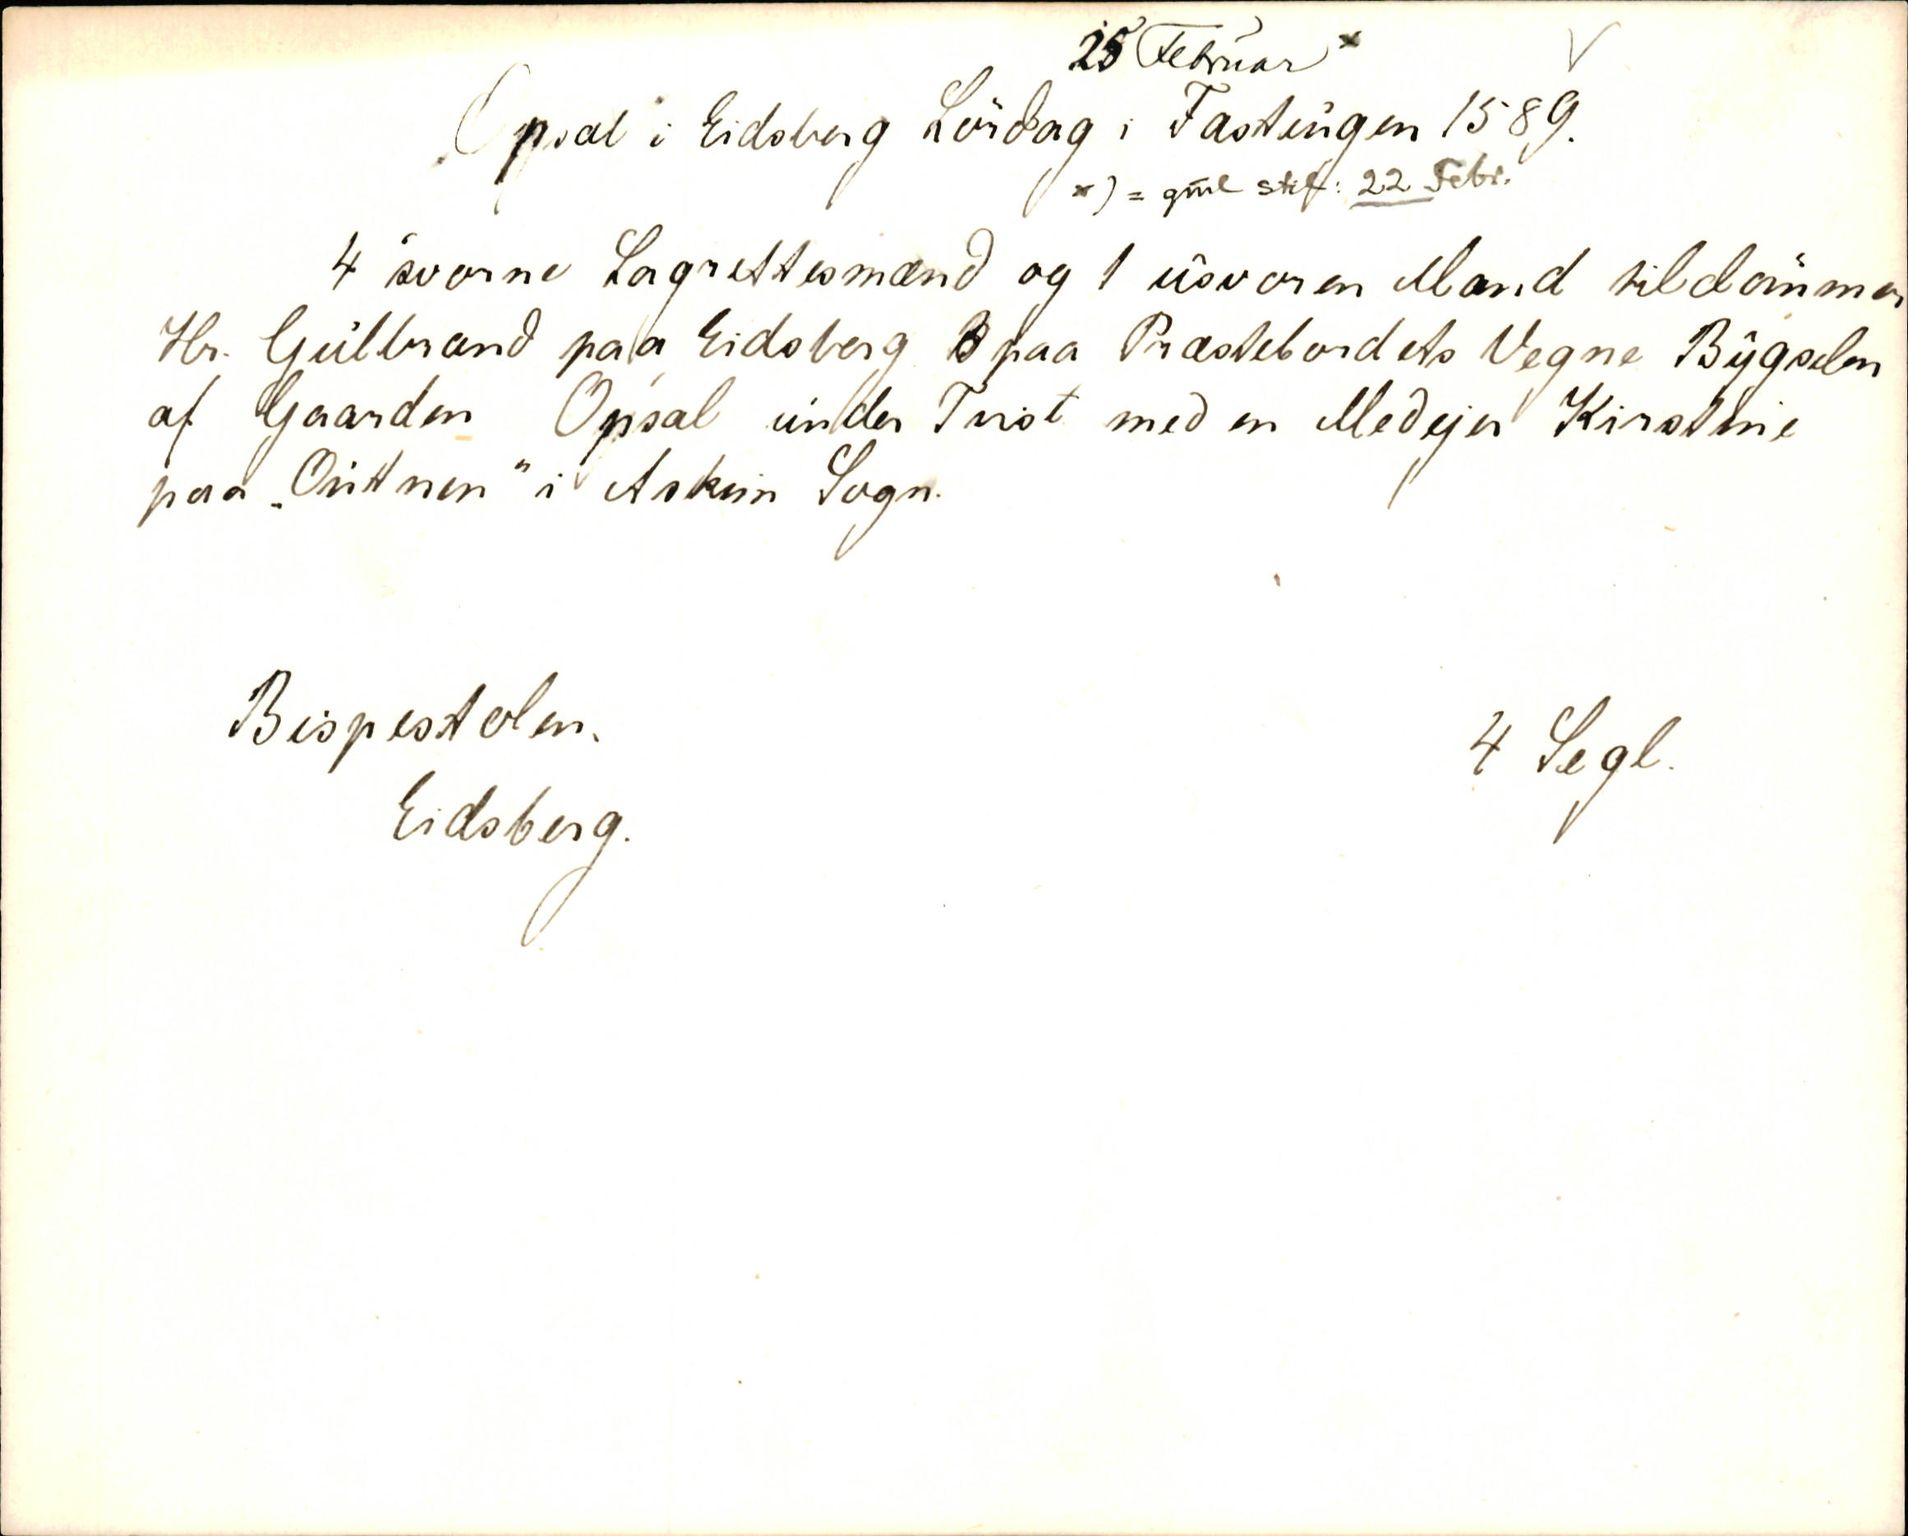 25 Februar *
Opsal i Eidsberg Lördag i Fastingen 1589.
*) = gml stil: 22 Febr.
4 svorne Lagrettesmænd og 1 usvoren Mand tildömmer
Hr. Gulbrand paa Eidsberg paa Præstebordets Vegne Bygselen
af Gaarden Opsal under Tvist med en Medejer Kirstine
paa „Outtnen" i Askim Sogn.
Bispestolen.
4 Segl.
Eidsberg.